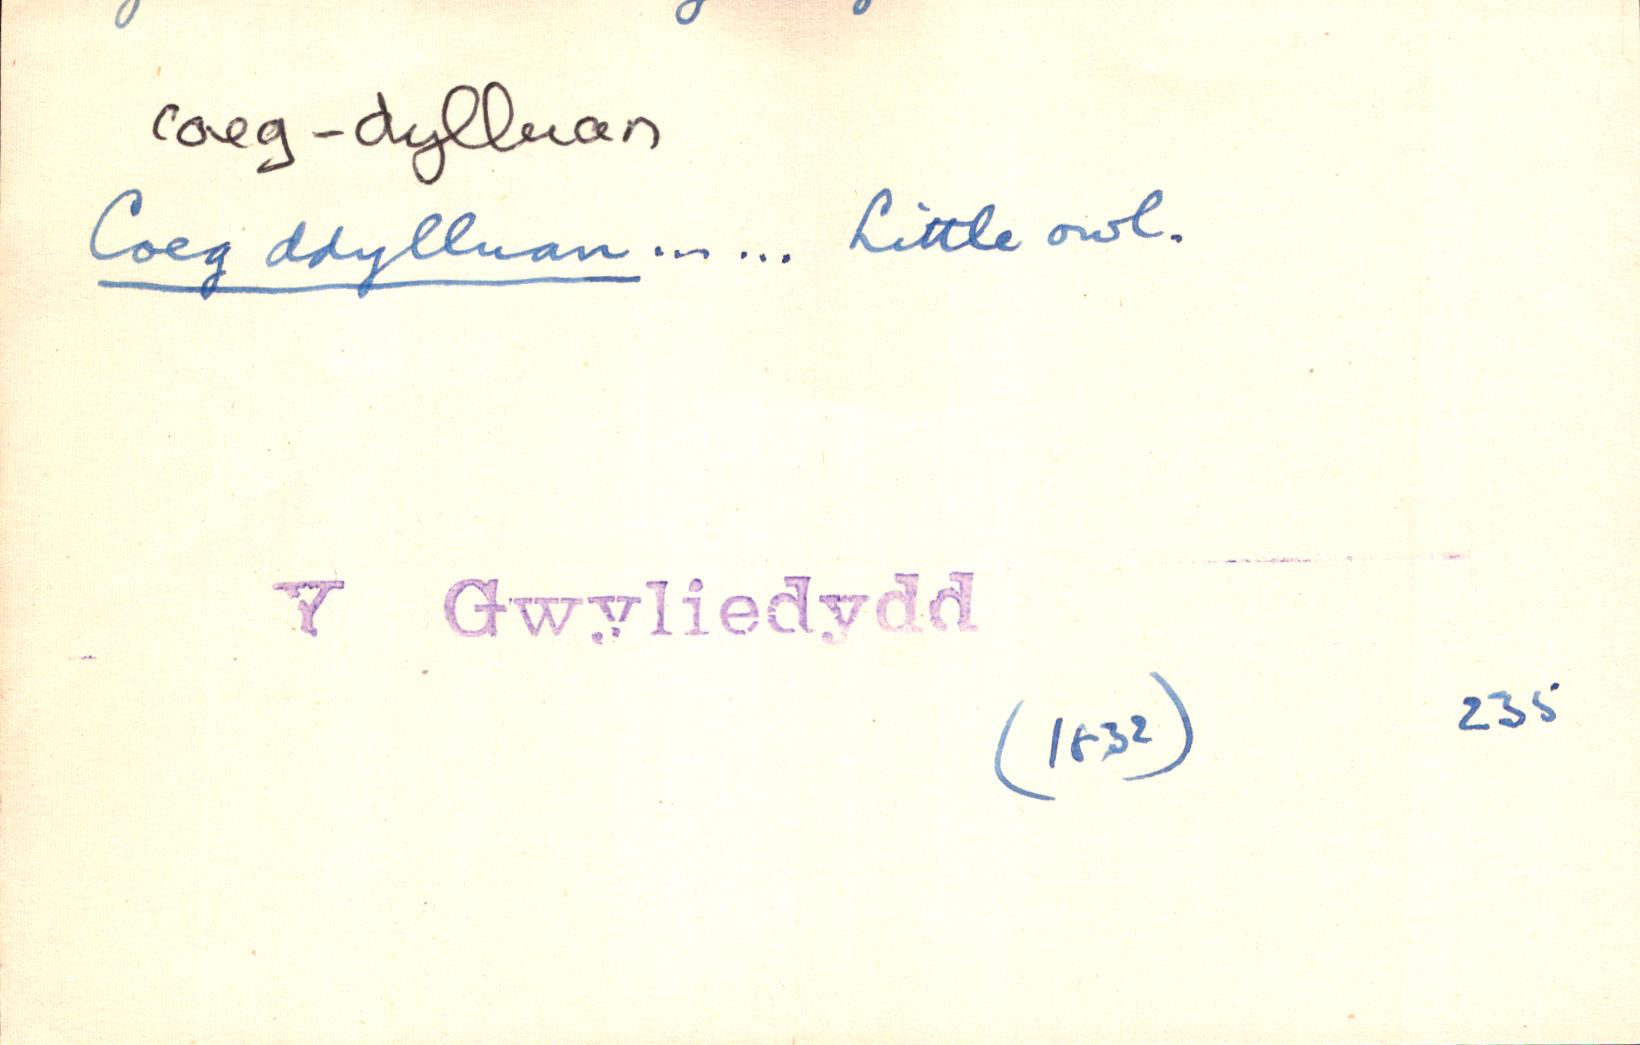 coeg-dylluan
Coeg ddylluan ... ... Little owl.
Y Gwyliedydd
(1832) 235